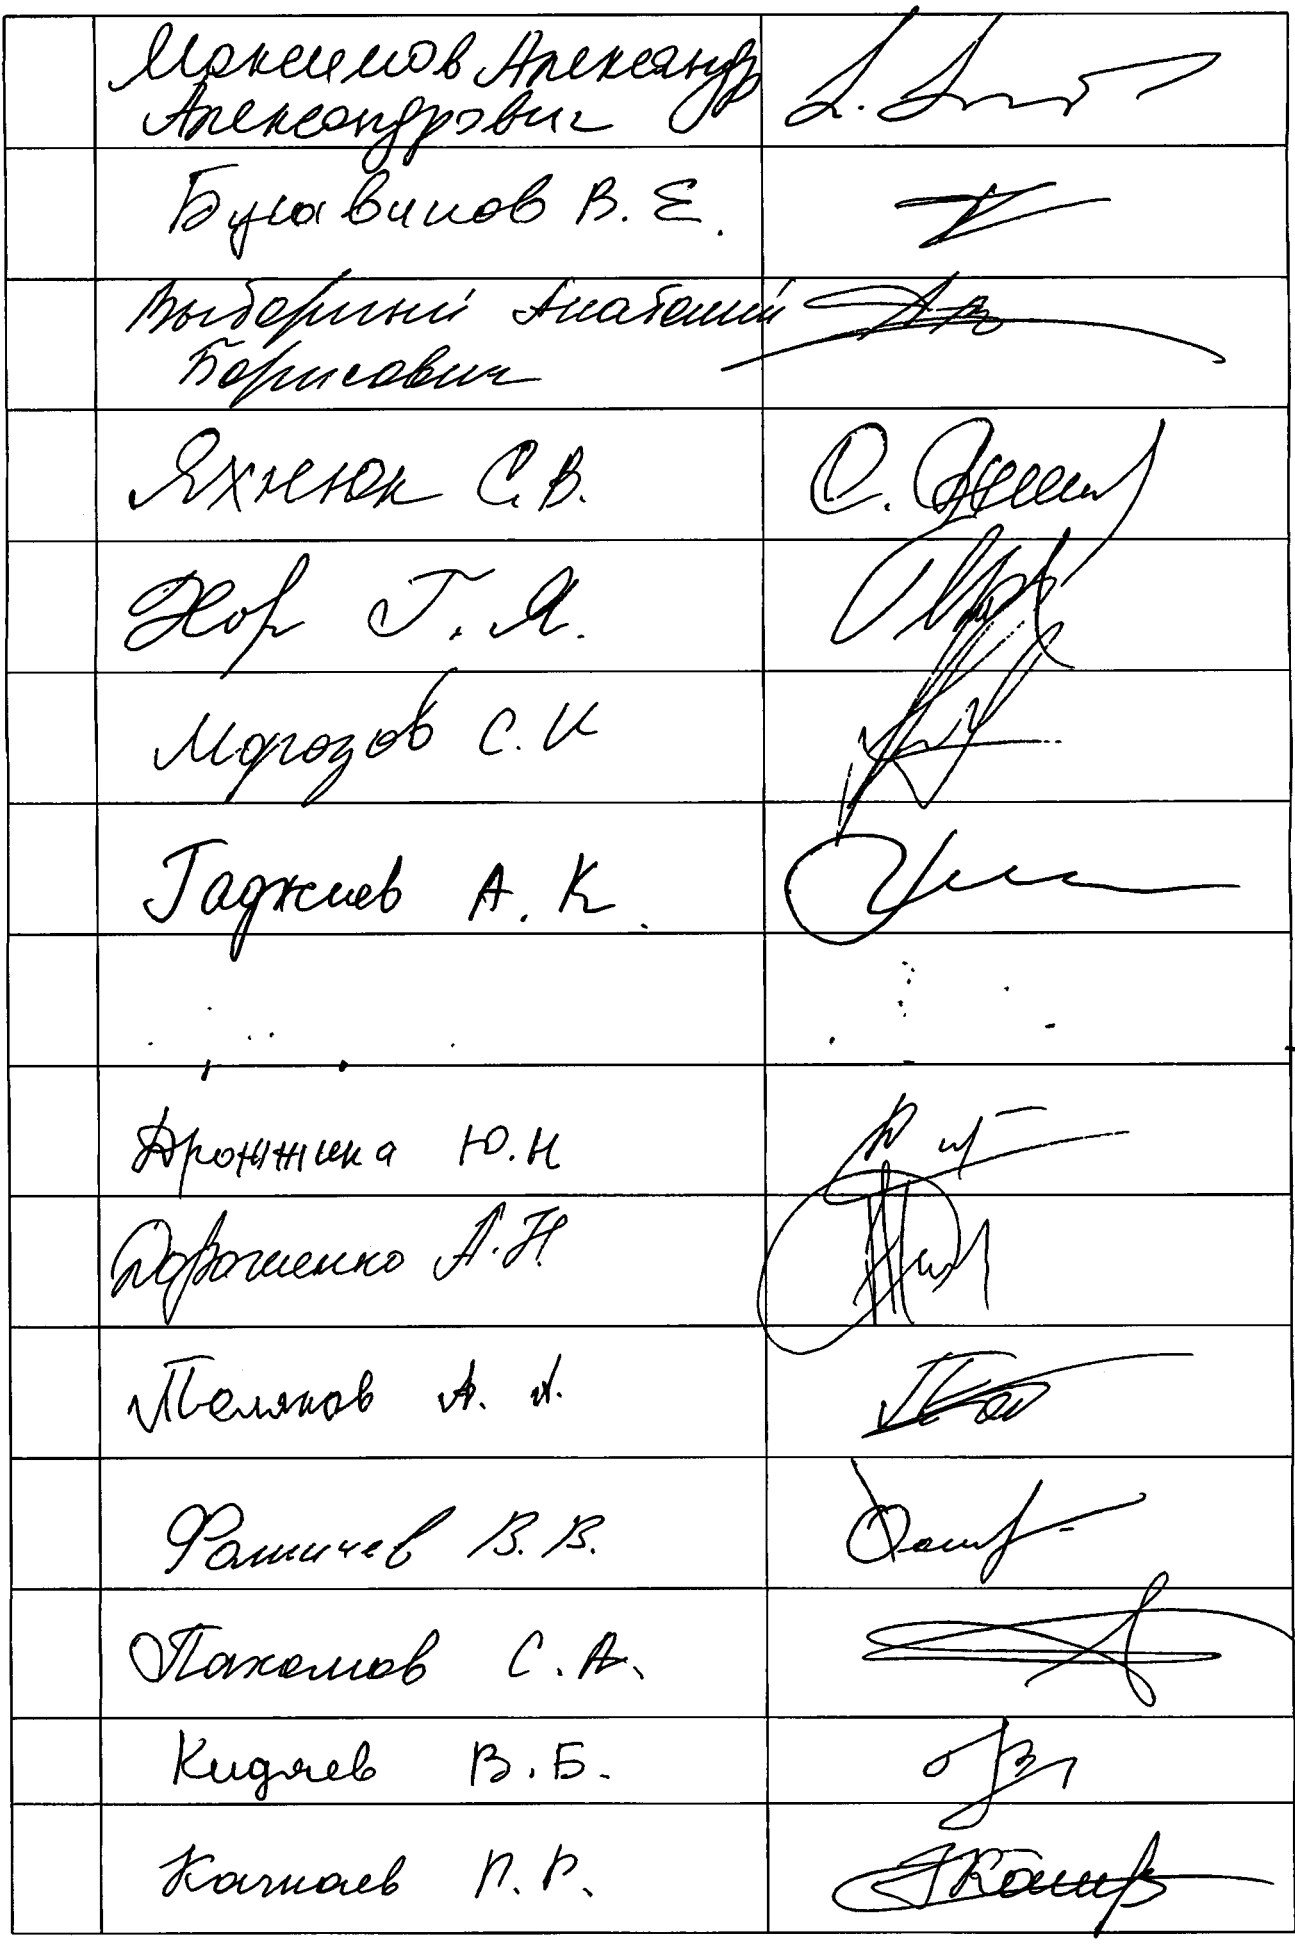 Максимов Александр
Александрович
Букавинов В. Е.
Выборный Анатолий
Борисович
Яхнюк С.В.
Хор Г. Я.
Морозов С. И
Гаджиев А. К.
Дрожжина Ю.Н
Дорошенко А.Н.
Поляков А. А.
Фомичев В. В.
Пахомов С. А.
Кидяев В. Б.
Качкаев П. Р.